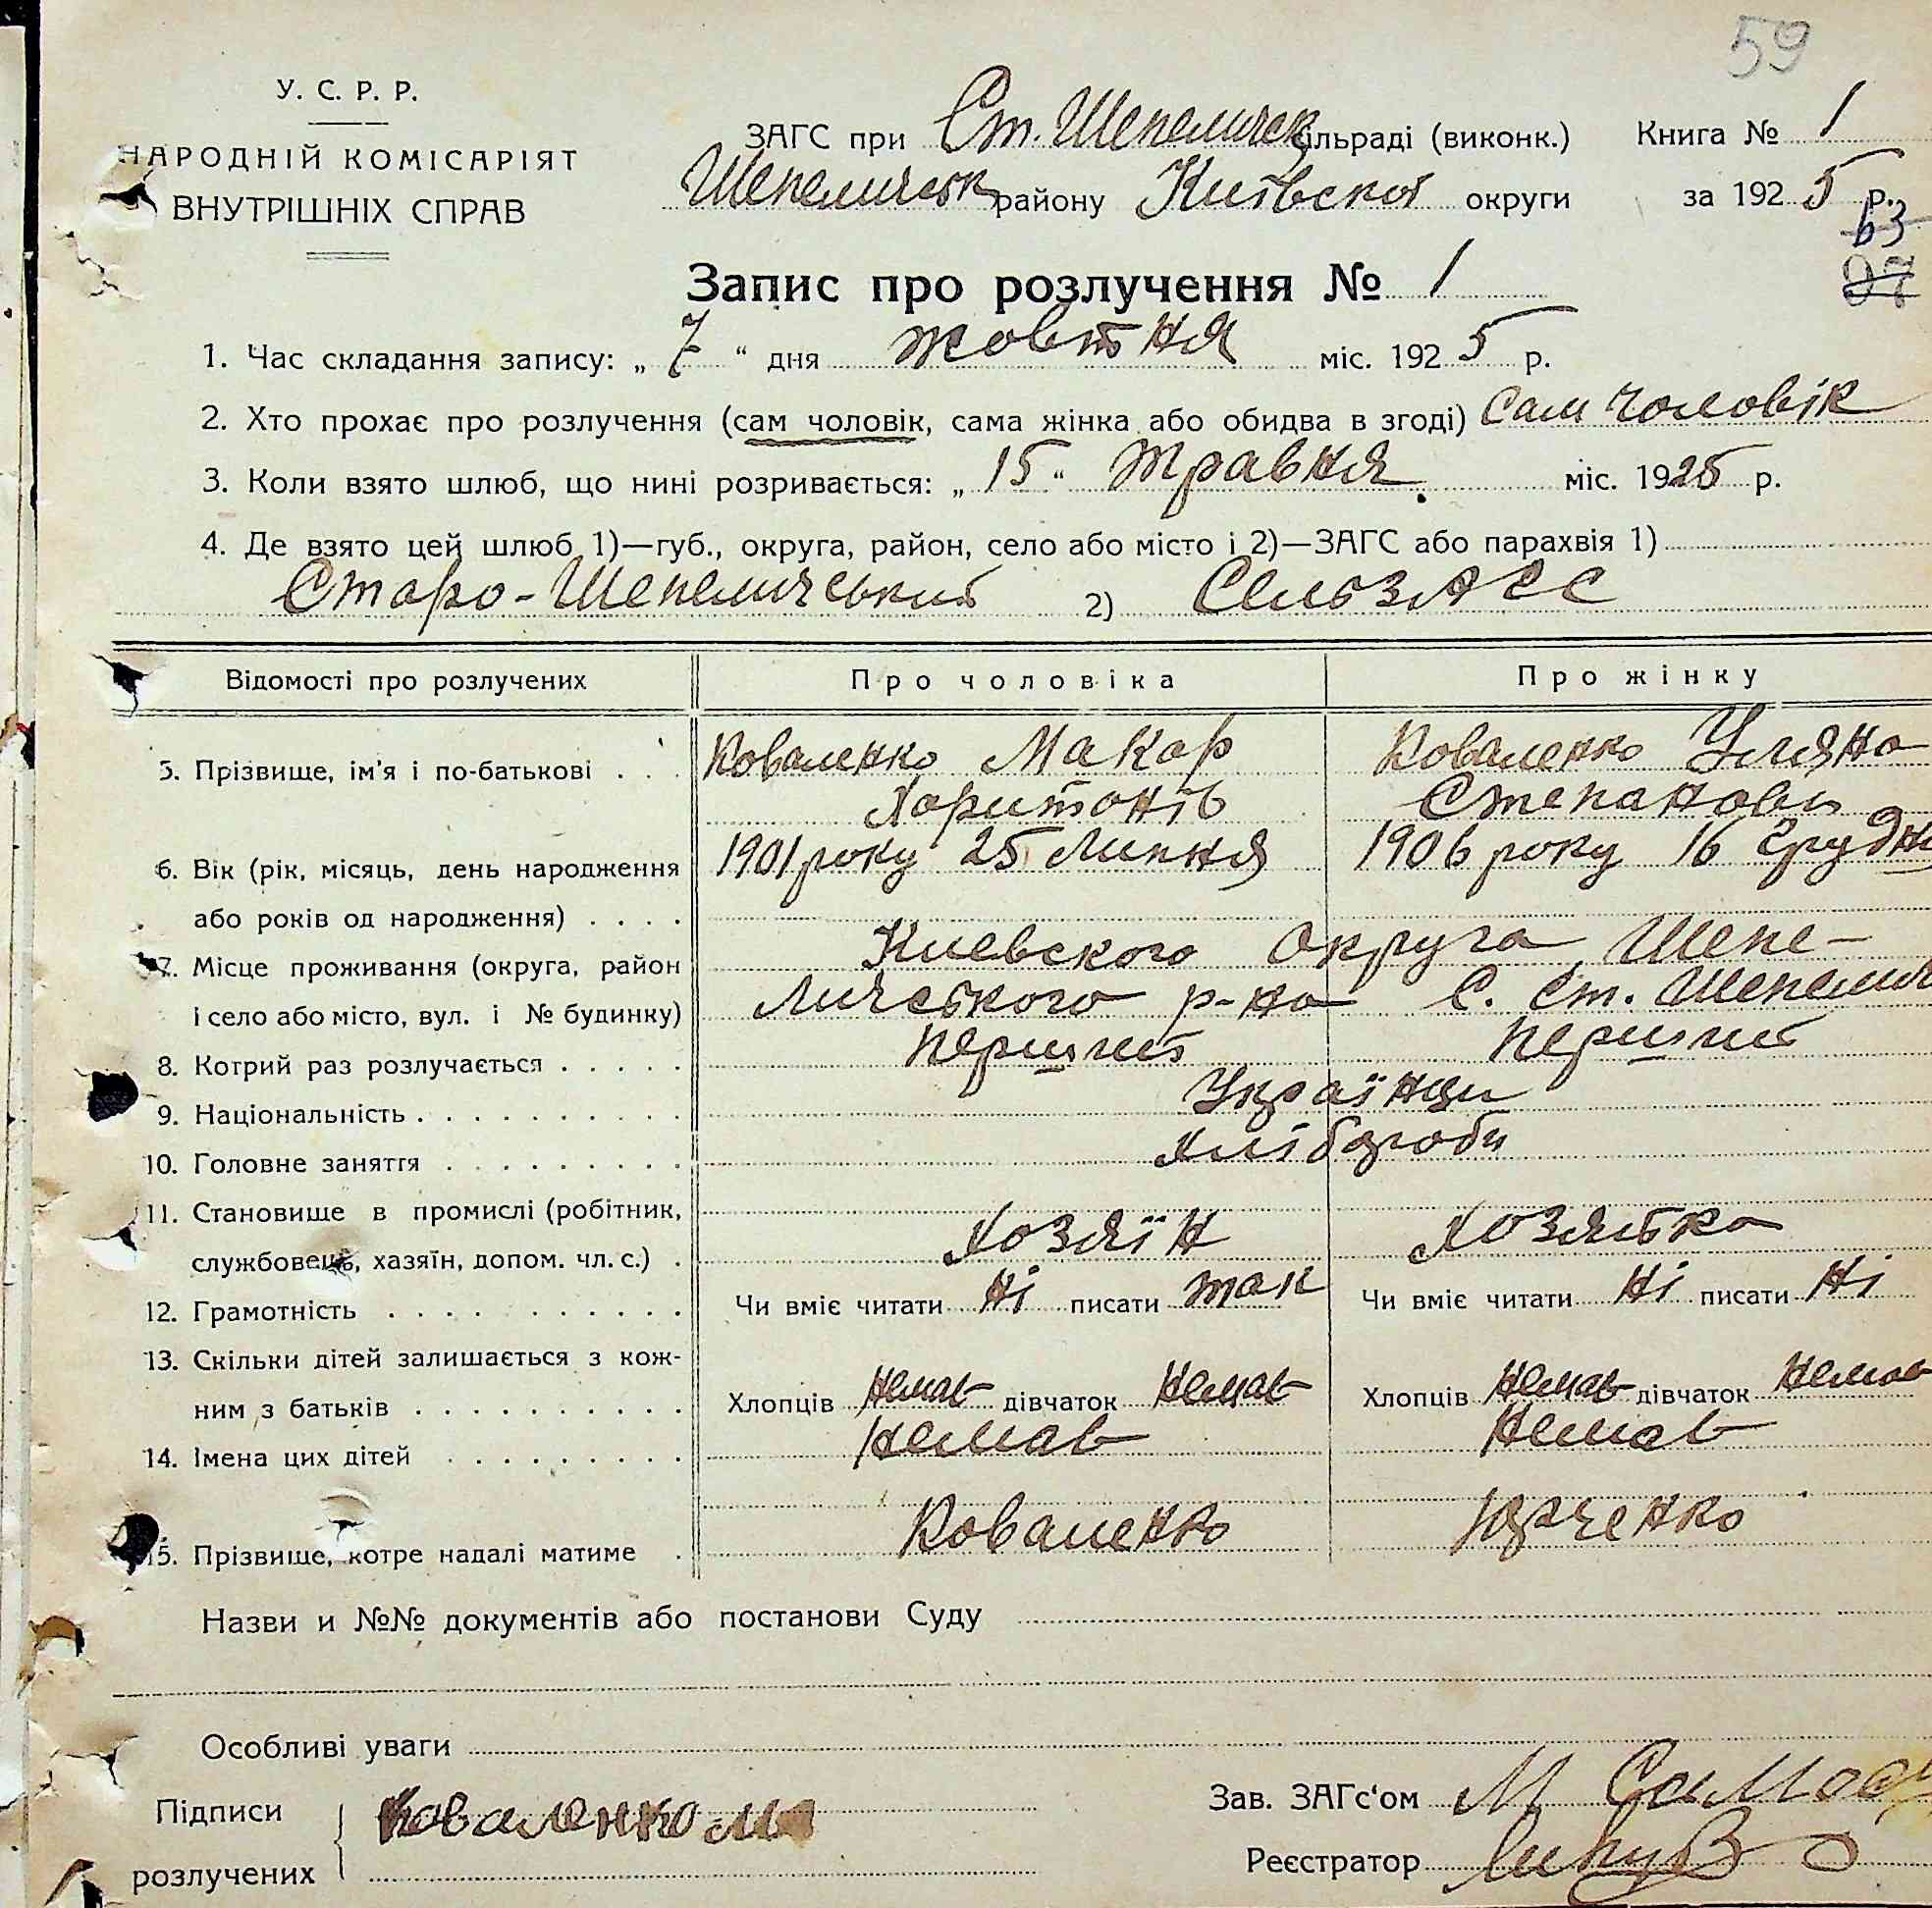 59
У. С. Р. Р.
НАРОДНІЙ КОМІСАРІЯТ
ВНУТРІШНІХ СПРАВ
ЗАГС при Ст. Шепелическ сільраді (виконк.) Книга № 1
Шепелическ району Київскоі округи за 1925 р.
63
Запис про розлучення № 1
1. Час складання запису: „ 7 “ дня жовтня міс. 1925 р.
2. Хто прохає про розлучення (сам чоловік, сама жінка або обидва в згоді) Сам чоловік
3. Коли взято шлюб, що нині розривається: „ 15 “ травня міс. 1925 р.
4. Де взято цей шлюб 1)—губ., округа, район, село або місто і 2)—ЗАГС або парахвія 1)
Старо-Шепелическый 2) Сельзагс
Відомості про розлучених Про чоловіка Про жінку
5. Прізвище, ім'я і по-батькові . . . Коваленко Макар Коваленко Уляна
Харитонів Степанови
6. Вік (рік, місяць, день народження 1901 року 25 Липня 1906 року 16 Грудня
або років од народження) . . . .
7. Місце проживання (округа, район Киевского Округа Шепе-
і село або місто, вул. і № будинку) личського р-на С. Ст. Шепелич
8. Котрий раз розлучається . . . . . Перший Перший
9. Національність . . . . . . . . . . Українци
10. Головне заняття . . . . . . . . . Хлібороби
11. Становище в промислі (робітник,
службовець, хазяїн, допом. чл. с.) . Хозяїн Хозяйка
12. Грамотність . . . . . . . . . . . Чи вміє читати Ні писати так Чи вміє читати Ні писати Ні
13. Скільки дітей залишається з кож-
ним з батьків . . . . . . . . . . Хлопців Немає дівчаток Немає Хлопців Немає дівчаток Немає
14. Імена цих дітей . . . . . . . . . Немає Немає
15. Прізвище, котре надалі матиме . Коваленко Юрченко
Назви и №№ документів або постанови Суду
Особливі уваги
Підписи Коваленко Зав. ЗАГс'ом М
розлучених Реєстратор